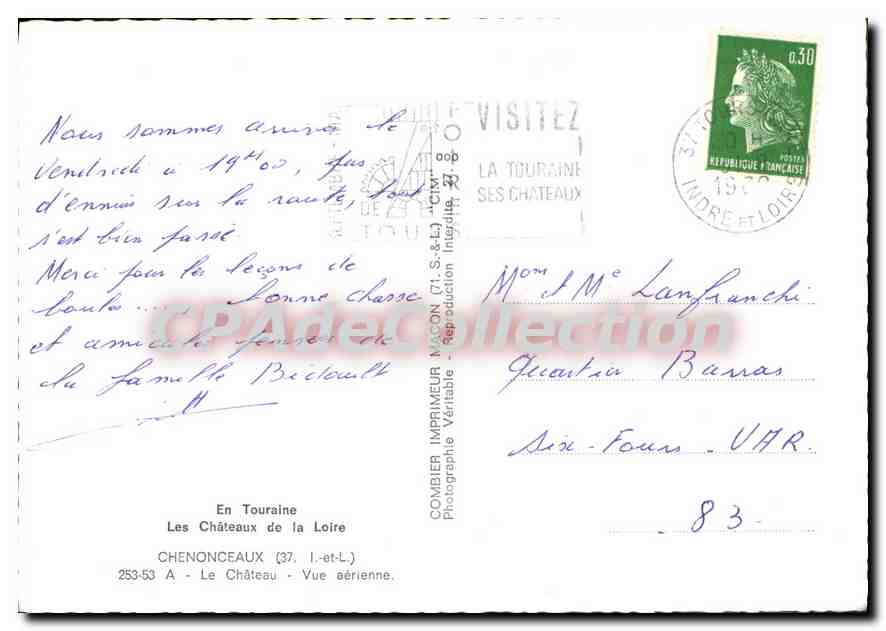 Nous sommes arrivés le
Vendredi à 19H00, pas
d'ennuis sur la route, tout
s'est bien passé.
Merci pour les leçons de
boules ...., bonne chasse
et amicales pensées de
la famille Bidault
En Touraine
Les Châteaux de la Loire
CHENONCEAUX (37. I.-et-L.)
253-53 A - Le Château - Vue aérienne.
COMBIER IMPRIMEUR MACON (71. S.-&-L.) "CIM"
Photographie Véritable - Reproduction Interdite
VISITEZ
LA TOURAINE
SES CHATEAUX
DE
TOU
37 TOU
INDRE ET LOIRE
0,30
POSTES
REPUBLIQUE FRANÇAISE
Mom et Me Lanfranchi
Quartier Barras
Six-Fours - VAR.
83.
CPAdeCollection.com